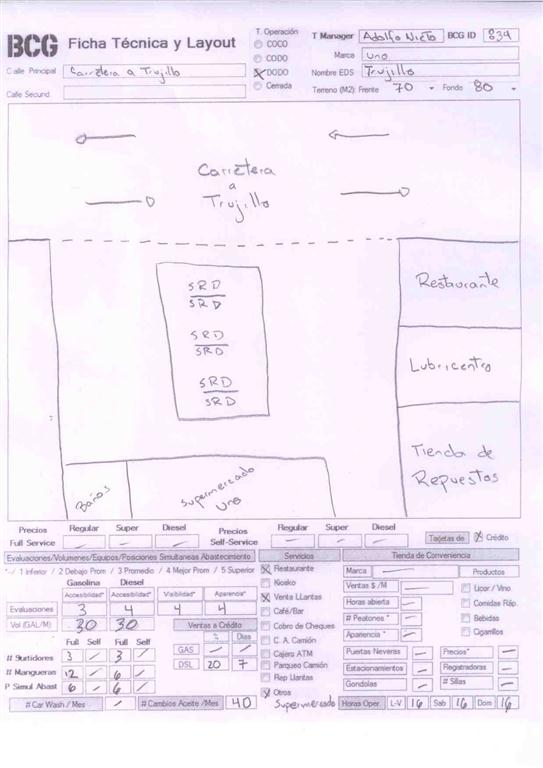 BCG Ficha Técnica y Layout
T. Operación
COCO
CODO
DODO
Cerrada
T Manager Adolfo Nieto BCG ID 834
Marca Uno
Nombre EDS Trujillo
Terreno (M2): Frente 70 - Fondo 80 -
Calle Principal Carretera a Trujillo
Calle Secund.
Carretera
a
Trujillo
SRD
SRD
SRD
SRD
SRD
SRD
Restaurante
Lubricentro
Tienda de
Repuestos
Baños
Supermercado
Uno
Precios Regular Super Diesel Precios Regular Super Diesel
Full Service - - - Self-Service - - - Tarjetas de X Crédito
Evaluaciones/Volumenes/Equipos/Posiciones Simultaneas Abastecimiento
*-/ 1 Inferior / 2 Debajo Prom / 3 Promedio / 4 Mejor Prom / 5 Superior
Gasolina Diesel
Accesibilidad* Accesibilidad* Visibilidad* Apariencia*
Evaluaciones 3 4 4 4
Vol (GAL/M) 30 30 Ventas a Crédito
Full Self Full Self % Dias
# Surtidores 3 / 3 / GAS - -
# Mangueras 12 / 6 / DSL 20 7
P Simul Abast 6 / 6 /
# Car Wash / Mes / # Cambios Aceite /Mes 40
Servicios
X Restaurante
Kiosko
X Venta LLantas
Café/Bar
Cobro de Cheques
C. A. Camión
Cajero ATM
Parqueo Camión
Rep Llantas
X Otros
Supermercado
Tienda de Conveniencia
Marca - Productos
Ventas $ /M - Licor / Vino
Horas abierta - Comidas Ráp.
# Peatones * - Bebidas
Apariencia * - Cigarrillos
Puertas Neveras - Precios* -
Estacionamientos - Registradoras -
Gondolas - # Sillas -
Horas Oper. L-V 16 Sab 16 Dom 16